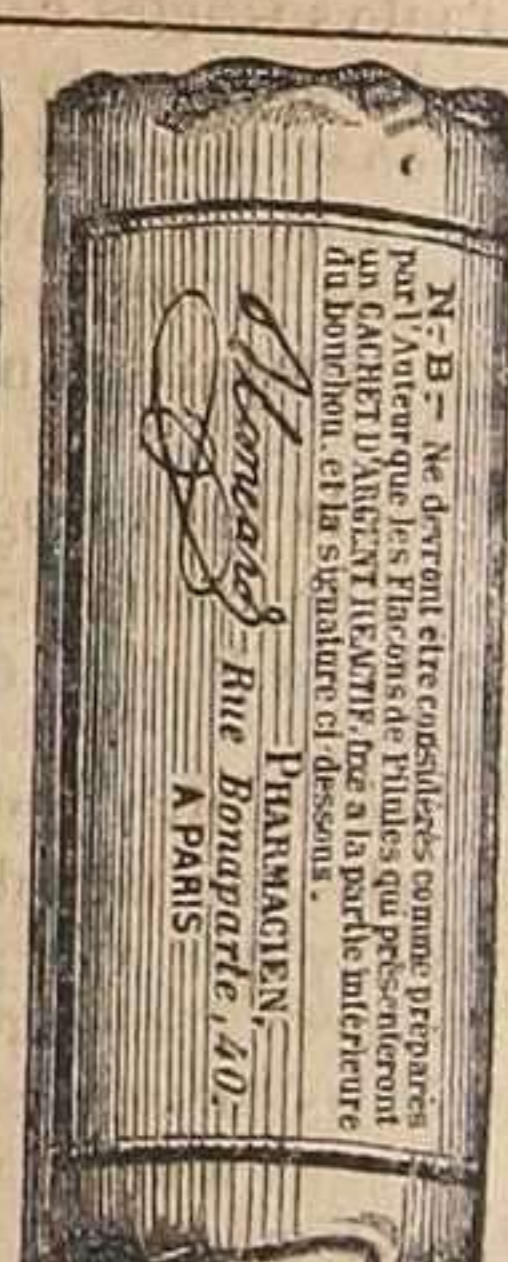 N.-B.- Ne devront être considérés comme préparés
par l'Auteur que les Flacons de Pilules qui présenteront
un CACHET D'ARGENT RÉACTIF, fixé à la partie inférieure
du bouchon, et la signature ci-dessous.
Blancard
PHARMACIEN,
Rue Bonaparte, 40.
A PARIS